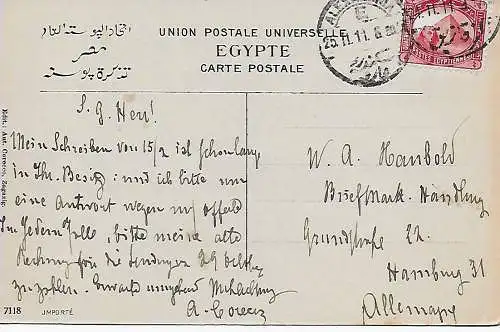 اتحاد البوستة العام
مصر
تذكرة بوستة
UNION POSTALE UNIVERSELLE
EGYPTE
CARTE POSTALE
25.11.11.
S. G. Herr!
Mein Schreiben von 15/2 ist schon lange
in Ihr. Besitz und ich bitte um
eine Antwort wegen m/ offerte
Im jedem Falle, bitte meine alte
Rechnung für die Sendung 29 Octb
zu zahlen. Erwarte umgehend
A. Corecz
W. A. Haubold
Briefmark. Handlung
Grundstrasse 22.
Hamburg 31
Allemagne
Edit.: Aut. Corecz, Zagazig.
7118 IMPORTÉ